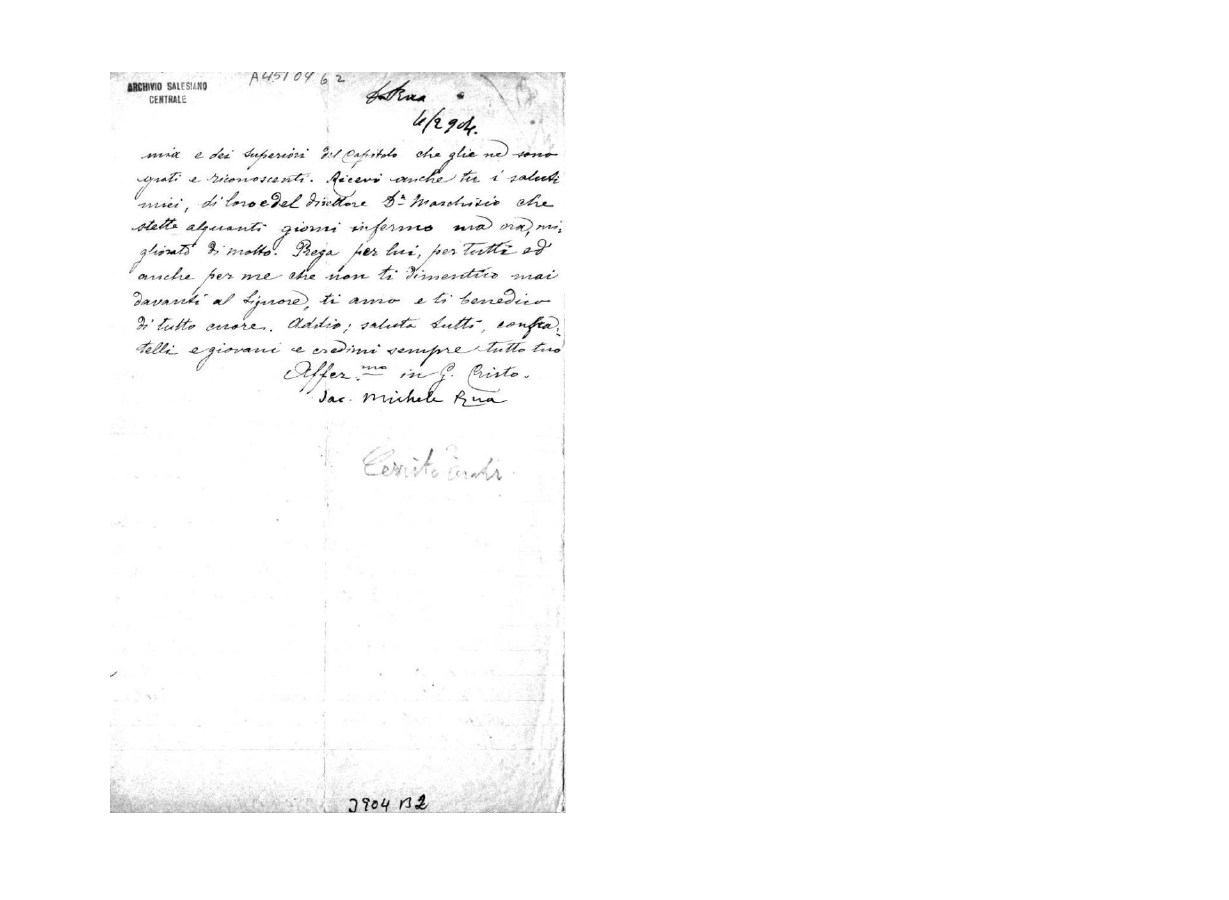 A4510462
ARCHIVIO SALESIANO
CENTRALE
D. Rua
4/2 904.
mia e dei Superiori del Capitolo che glie ne sono
grati e riconoscenti. Ricevi anche tu i saluti
miei, di loro e del direttore Dn Marchisio che
stette alquanti giorni infermo ma ora, mi-
gliorato di molto. Prega per lui, per tutti ed
anche per me che non ti dimentico mai
davanti al Signore, ti amo e ti benedico
di tutto cuore. Addio; saluta tutti, confra-
telli e giovani e credimi sempre tutto tuo
Affez.mo in G. Cristo.
Sac. Michele Rua
Cerrito
J904 B2